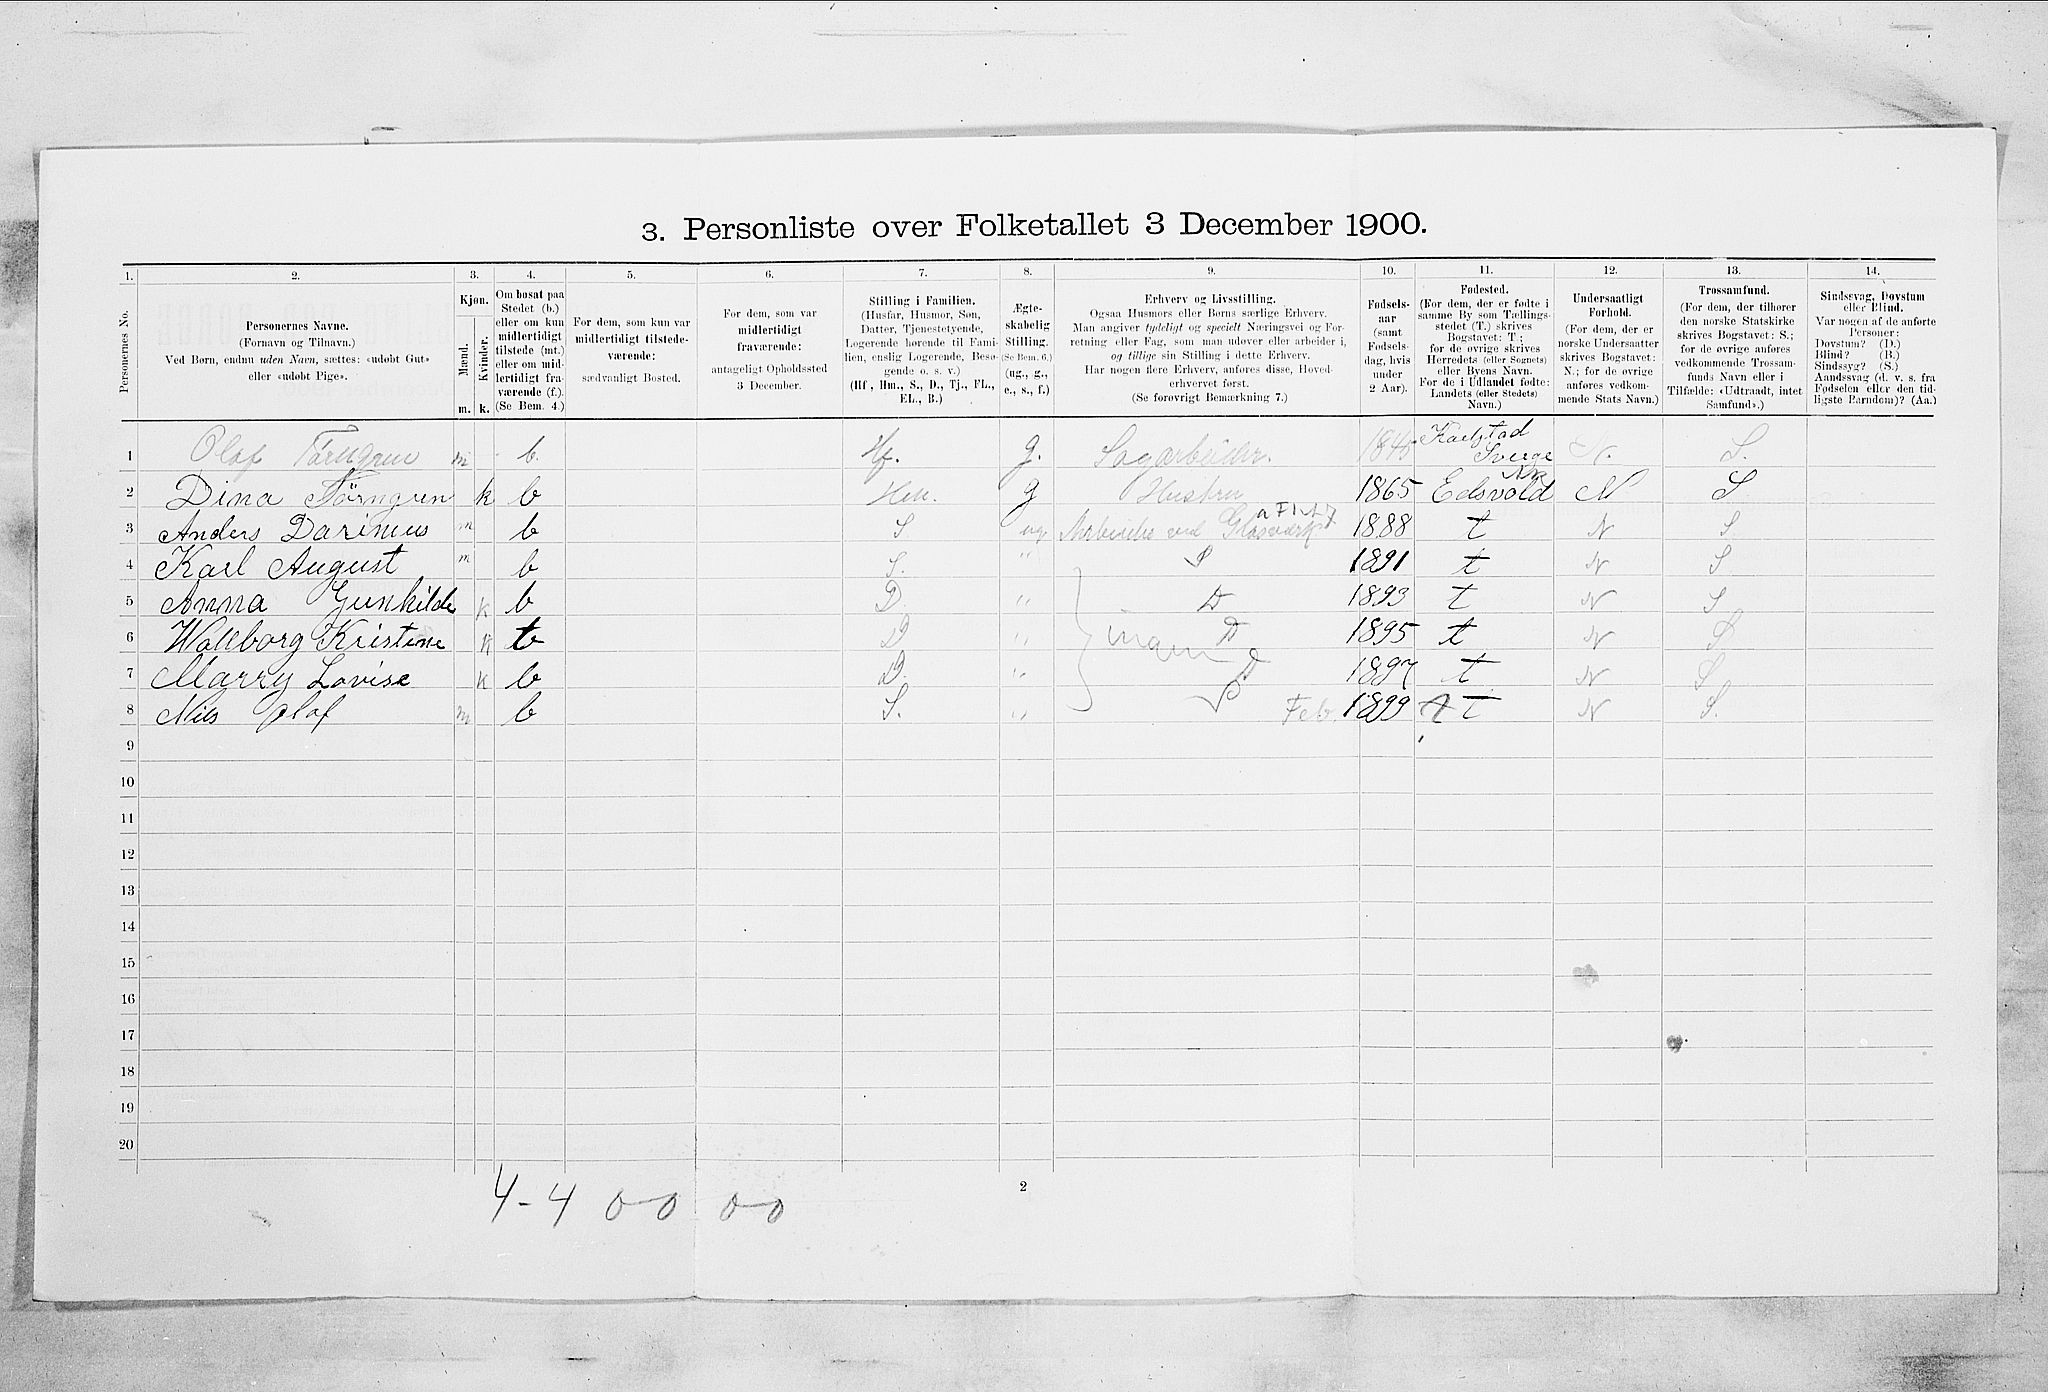 3. Personliste over Folketallet 3 December 1900.
1. 2. 3. 4. 5. 6. 7. 8. 9. 10. 11. 12. 13. 14.
Personernes No.
Personernes Navne.
(Fornavn og Tilnavn.)
Ved Børn, endnu uden Navn, sættes: «udøbt Gut»
eller «udøbt Pige».
Kjøn.
Mænd. Kvinder.
m. k.
Om bosat paa
Stedet (b.)
eller om kun
midlertidigt
tilstede (mt.)
eller om mid-
lertidigt fra-
værende (f.).
(Se Bem. 4.)
For dem, som kun var
midlertidigt tilstede-
værende:
sædvanligt Bosted.
For dem, som var
midlertidigt
fraværende:
antageligt Opholdssted
3 December.
Stilling i Familien.
(Husfar, Husmor, Søn,
Datter, Tjenestetyende,
Logerende hørende til Fami-
lien, enslig Logerende, Besø-
gende o. s. v.)
(Hf., Hm., S., D., Tj., FL.,
EL., B.)
Ægte-
skabelig
Stilling.
(Se Bem. 6.)
(ug., g.,
e., s., f.)
Erhverv og Livsstilling.
Ogsaa Husmors eller Børns særlige Erhverv.
Man angiver tydeligt og specielt Næringsvei og For-
retning eller Fag, som man udøver eller arbeider i,
og tillige sin Stilling i dette Erhverv.
Har nogen flere Erhverv, anføres disse, Hoved-
erhvervet først.
(Se forøvrigt Bemærkning 7.)
Fødsels-
aar
(samt
Fødsels-
dag, hvis
under
2 Aar).
Fødested.
(For dem, der er fødte i
samme By som Tællings-
stedet (T.) skrives
Bogstavet: T.;
for de øvrige skrives
Herredets (eller Sognets)
eller Byens Navn.
For de i Udlandet fødte:
Landets (eller Stedets)
Navn.)
Undersaatligt
Forhold.
(For dem, der er
norske Undersaatter
skrives Bogstavet:
N.; for de øvrige
anføres vedkom-
mende Stats Navn.)
Trossamfund.
(For dem, der tilhører
den norske Statskirke
skrives Bogstavet: S.;
for de øvrige anføres
vedkommende Trossam-
funds Navn eller i
Tilfælde: «Udtraadt, intet
Samfund».)
Sindssvag, Døvstum
eller Blind.
Var nogen af de anførte
Personer:
Døvstum? (D.)
Blind? (B.)
Sindssyg? (S.)
Aandssvag (d. v. s. fra
Fødselen eller den tid-
ligste Barndom)? (Aa.)
1 Olaf Törngren m b. Hf. g. Sagarbeider. 184 Karlstad Sverge N. S.
2 Dina Törngren k b Hm. g Hustru 1865 Edsvold N S
3 Anders Darinius m b S ug Arbeider ved Glasværk 1888 t N S
4 Karl August m b S. " S 1891 t N S
5 Anna Gunhilde k b D. " D 1893 t N S
6 Walborg Kristine k b D " D 1895 t N S
7 Marry Lovise k b D. " D 1897 t N S
8 Nils Olaf m b S. " S Feb. 1899 T N S.
9
10
11
12
13
14
15
16
17
18
19
20
4-4 0-0 0-0
2